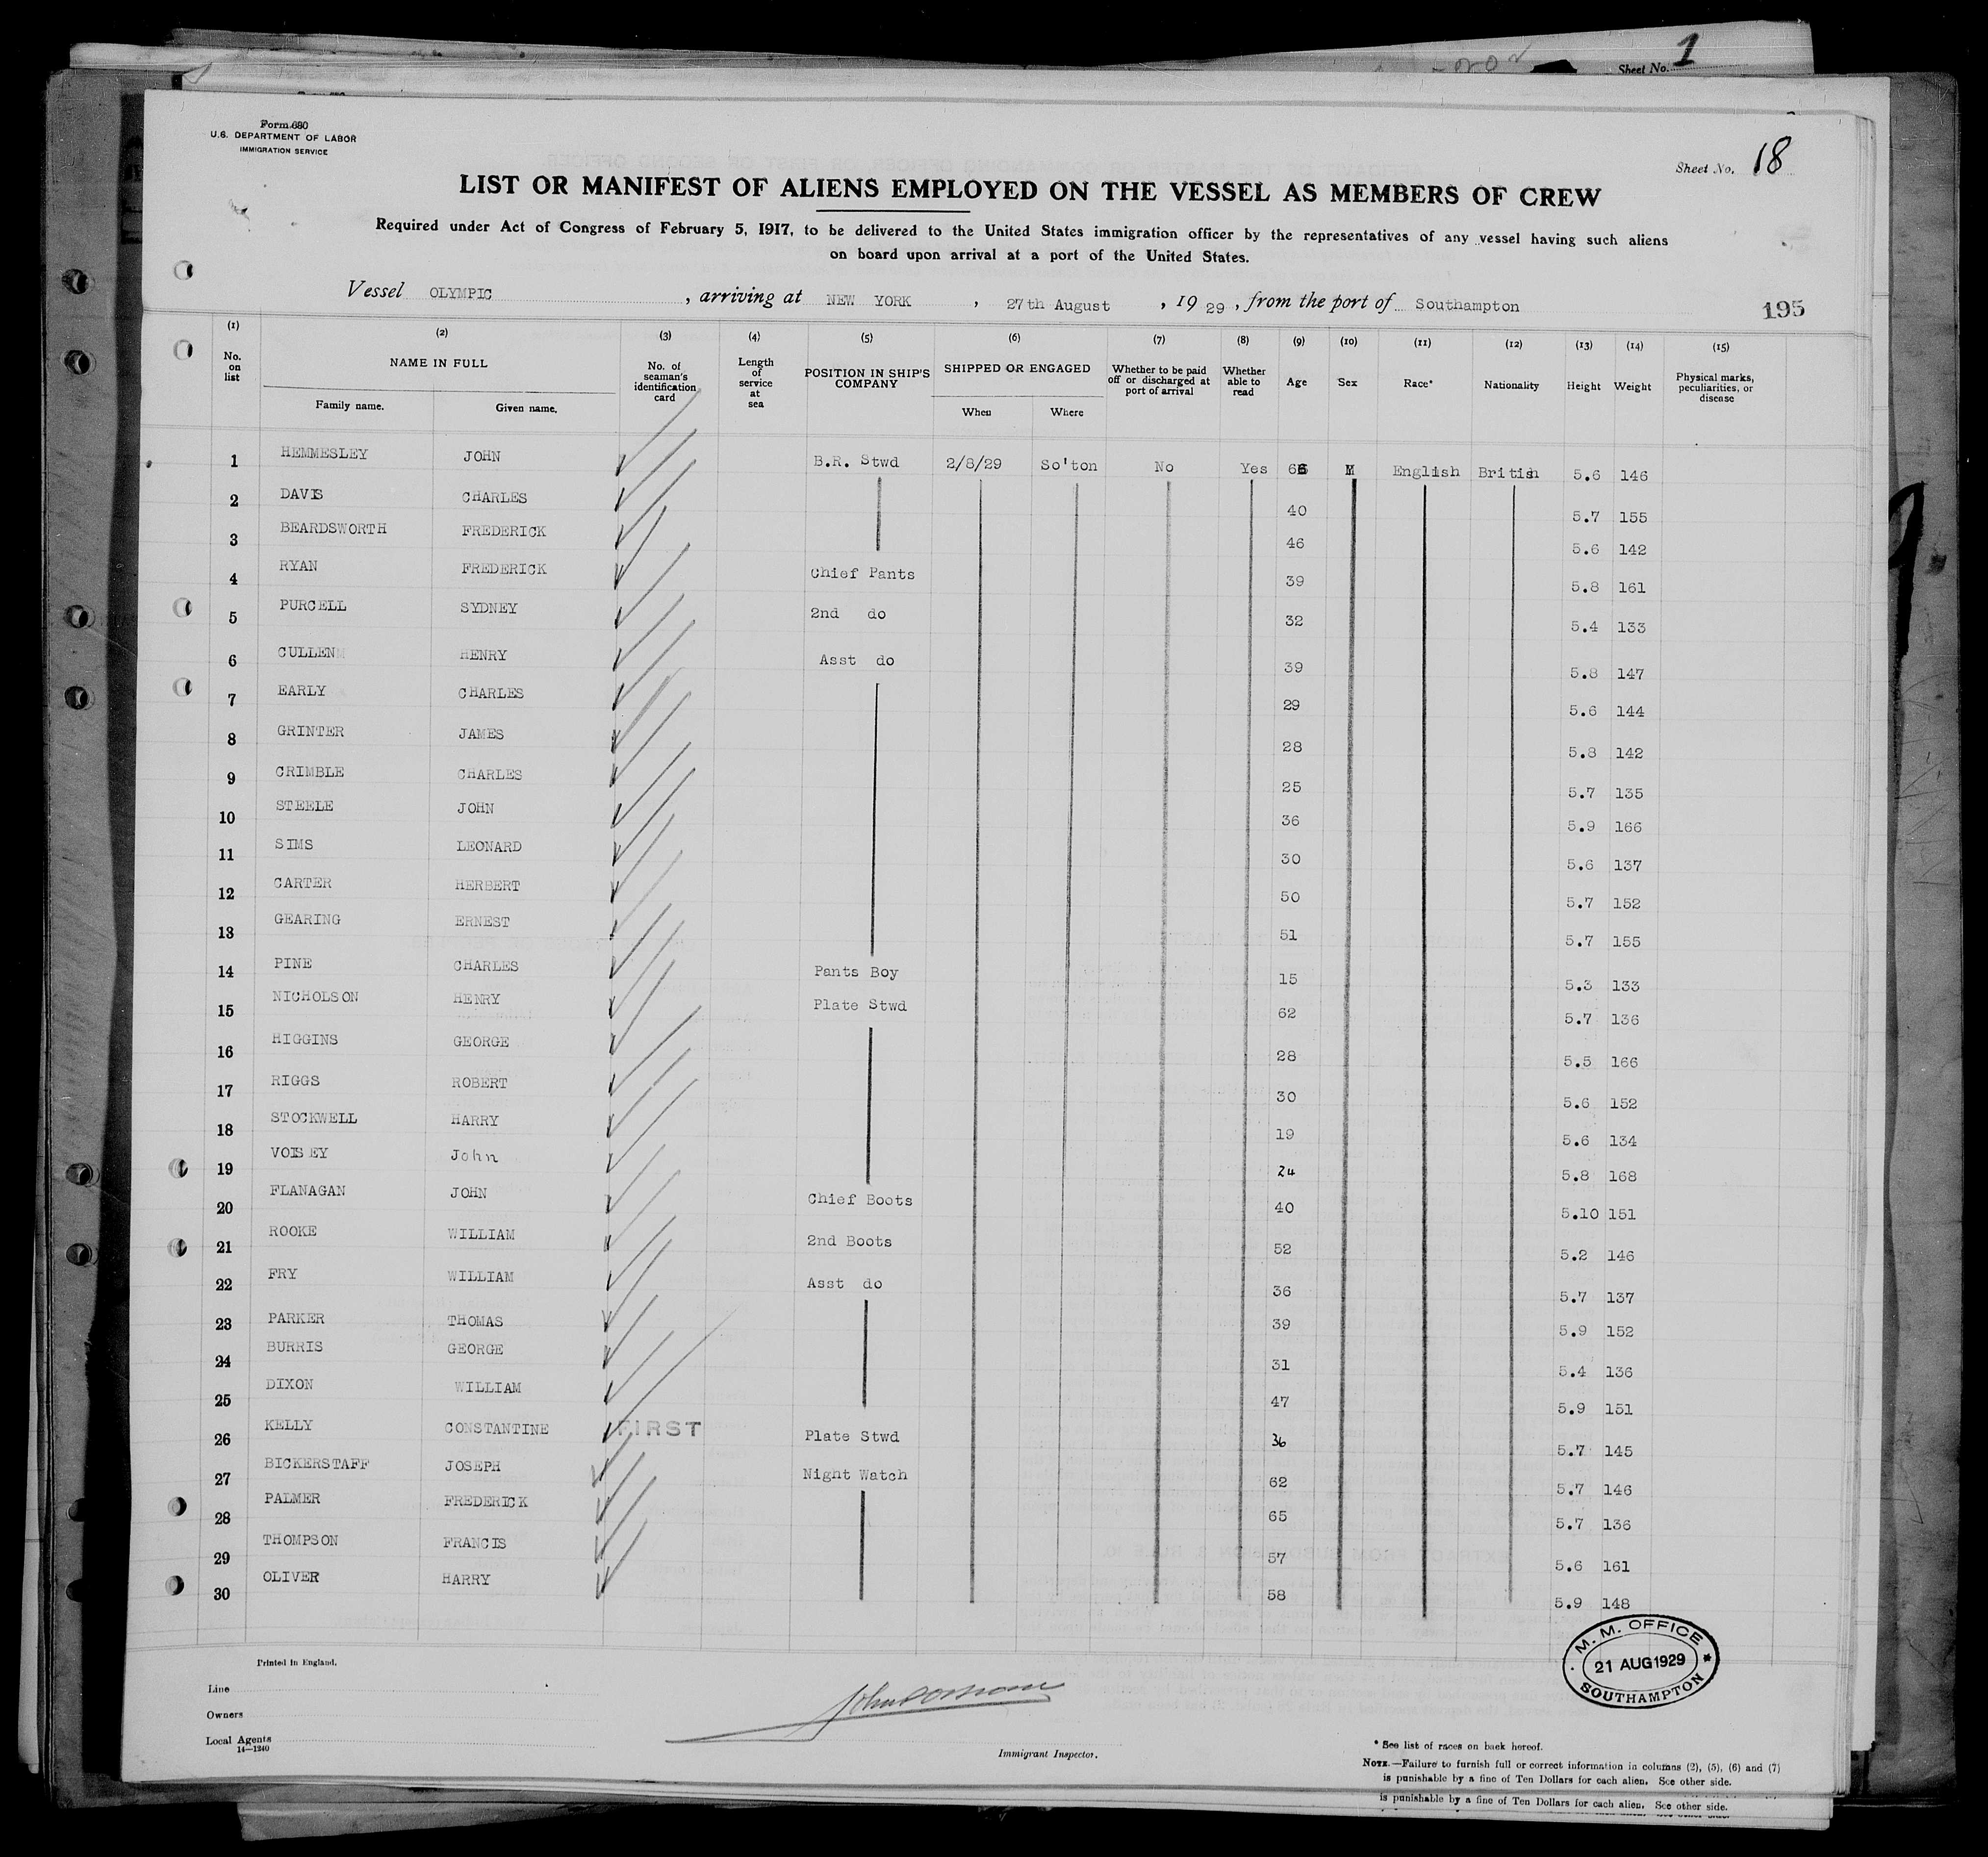 Sheet No. 1
Form 680
U.S. DEPARTMENT OF LABOR
IMMIGRATION SERVICE
Sheet No. 18
LIST OR MANIFEST OF ALIENS EMPLOYED ON THE VESSEL AS MEMBERS OF CREW
Required under Act of Congress of February 5, 1917, to be delivered to the United States immigration officer by the representatives of any vessel having such aliens
on board upon arrival at a port of the United States.
Vessel OLYMPIC , arriving at NEW YORK , 27th August , 19 29 , from the port of Southampton
195
(1) (2) (3) (4) (5) (6) (7) (8) (9) (10) (11) (12) (13) (14) (15)
No. on list NAME IN FULL Family name. Given name. No. of seaman's identification card Length of service at sea POSITION IN SHIP'S COMPANY SHIPPED OR ENGAGED When Where Whether to be paid off or discharged at port of arrival Whether able to read Age Sex Race* Nationality Height Weight Physical marks, peculiarities, or disease
1 HEMMESLEY JOHN B.R. Stwd 2/8/29 So'ton No Yes M English British 5.6 146
2 DAVIS CHARLES 40 5.7 155
3 BEARDSWORTH FREDERICK 46 5.6 142
4 RYAN FREDERICK Chief Pants 39 5.8 161
5 PURCELL SYDNEY 2nd do 32 5.4 133
6 CULLEN HENRY Asst do 39 5.8 147
7 EARLY CHARLES 29 5.6 144
8 GRINTER JAMES 28 5.8 142
9 CRIMBLE CHARLES 25 5.7 135
10 STEELE JOHN 36 5.9 166
11 SIMS LEONARD 30 5.6 137
12 CARTER HERBERT 50 5.7 152
13 GEARING ERNEST 51 5.7 155
14 PINE CHARLES Pants Boy 15 5.3 133
15 NICHOLSON HENRY Plate Stwd 62 5.7 136
16 HIGGINS GEORGE 28 5.5 166
17 RIGGS ROBERT 30 5.6 152
18 STOCKWELL HARRY 19 5.6 134
19 VOISEY John 24 5.8 168
20 FLANAGAN JOHN Chief Boots 40 5.10 151
21 ROOKE WILLIAM 2nd Boots 52 5.2 146
22 FRY WILLIAM Asst do 36 5.7 137
23 PARKER THOMAS 39 5.9 152
24 BURRIS GEORGE 31 5.4 136
25 DIXON WILLIAM 47 5.9 151
26 KELLY CONSTANTINE FIRST Plate Stwd 36 5.7 145
27 BICKERSTAFF JOSEPH Night Watch 62 5.7 146
28 PALMER FREDERICK 65 5.7 136
29 THOMPSON FRANCIS 57 5.6 161
30 OLIVER HARRY 58 5.9 148
M. M. OFFICE
21 AUG 1929
SOUTHAMPTON
Printed in England.
Line
Owners
Local Agents
14—1240
Immigrant Inspector.
* See list of races on back hereof.
NOTE.—Failure to furnish full or correct information in columns (2), (5), (6) and (7)
is punishable by a fine of Ten Dollars for each alien. See other side.
is punishable by a fine of Ten Dollars for each alien. See other side.